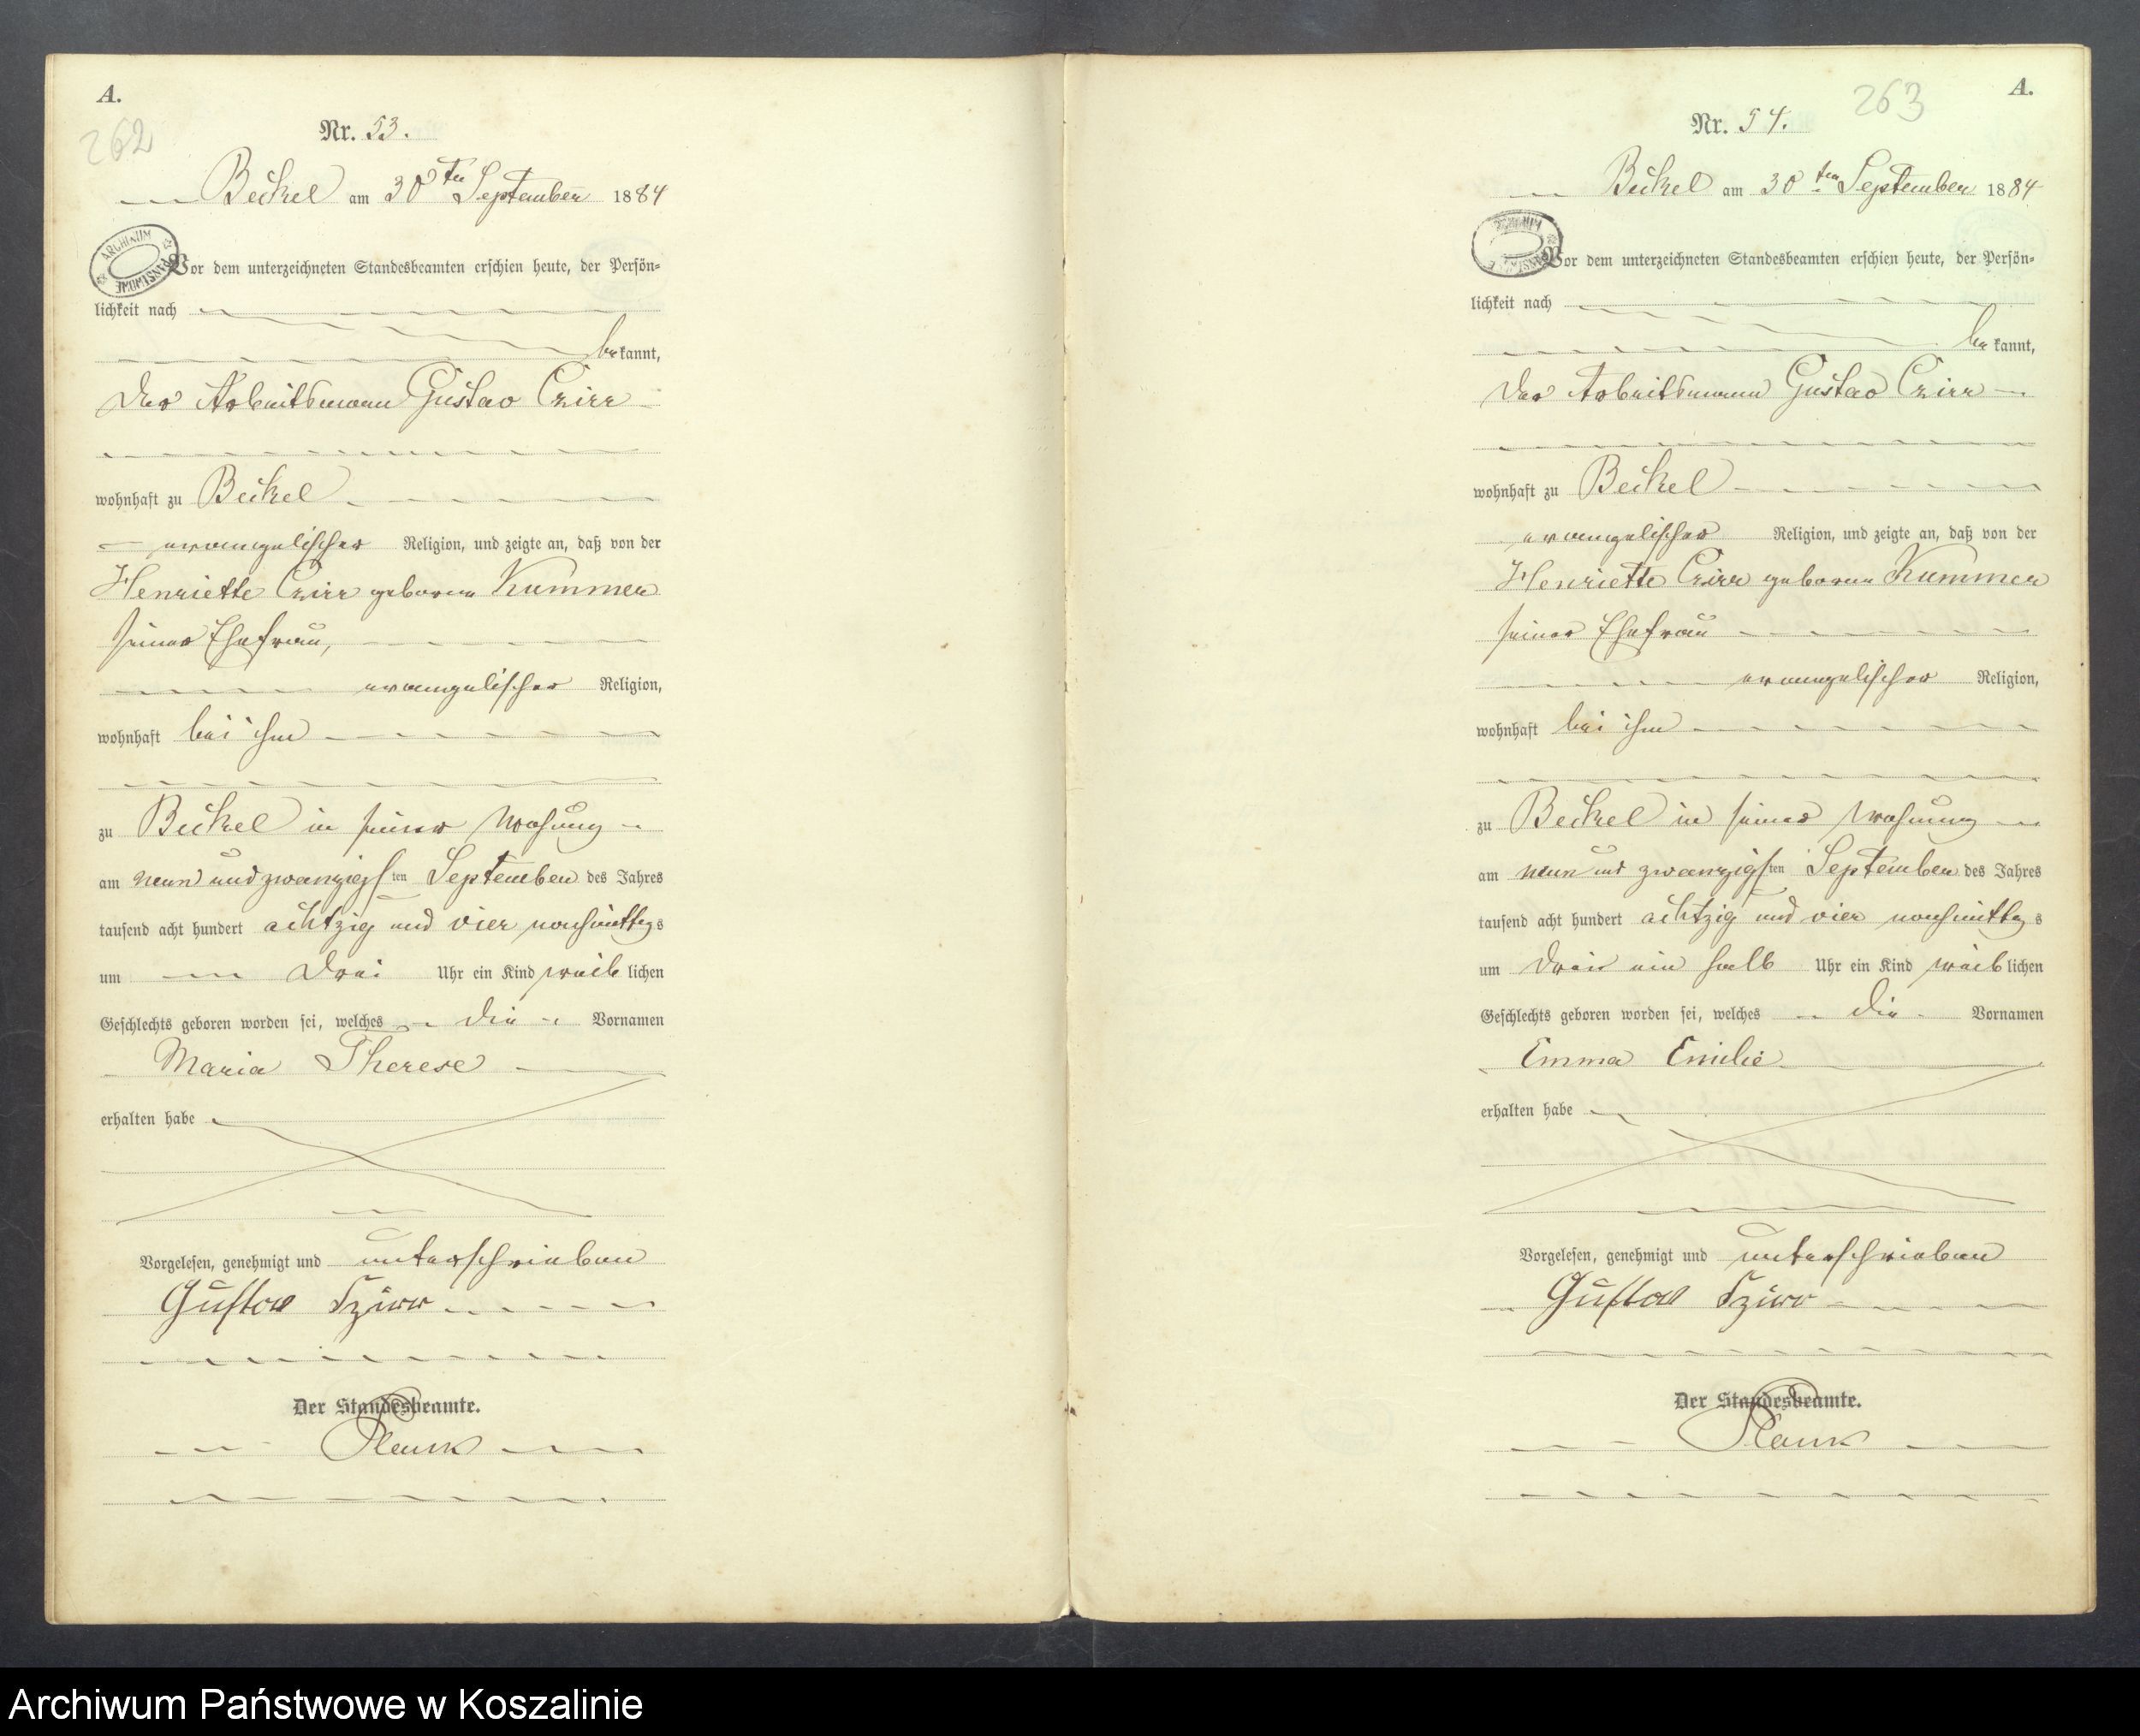 A.
262
Nr. 53.
Beckel am 30ten September 1884
ARCHIWUM PAŃSTWOWE
Vor dem unterzeichneten Standesbeamten erschien heute, der Persön=
lichkeit nach
bekannt,
Der Arbeitsmann Gustav Czirr
wohnhaft zu Beckel
evangelischer Religion, und zeigte an, daß von der
Henriette Czirr geborne Kummer
seiner Ehefrau,
evangelischer Religion,
wohnhaft bei ihm
zu Beckel in seiner Wohnung
am neun und zwanzigsten September des Jahres
tausend acht hundert achtzig und vier nachmittags
um Drei Uhr ein Kind weiblichen
Geschlechts geboren worden sei, welches die Vornamen
Maria Therese
erhalten habe
Vorgelesen, genehmigt und unterschrieben
Gustav Czirr
Der Standesbeamte.
263
A.
Nr. 54.
Beckel am 30ten September 1884
Vor dem unterzeichneten Standesbeamten erschien heute, der Persön=
lichkeit nach
bekannt,
Der Arbeitsmann Gustav Czirr
wohnhaft zu Beckel
evangelischer Religion, und zeigte an, daß von der
Henriette Czirr geborne Kummer
seiner Ehefrau
evangelischer Religion,
wohnhaft bei ihm
zu Beckel in seiner Wohnung
am neun und zwanzigsten September des Jahres
tausend acht hundert achtzig und vier nachmittags
um Drei ein halb Uhr ein Kind weiblichen
Geschlechts geboren worden sei, welches die Vornamen
Emma Emilie
erhalten habe
Vorgelesen, genehmigt und unterschrieben
Gustav Czirr
Der Standesbeamte.
Archiwum Państwowe w Koszalinie